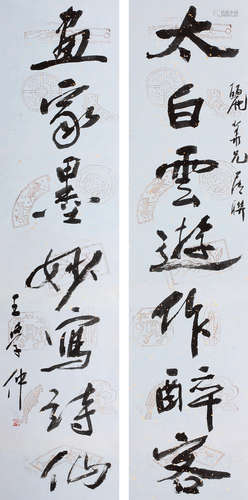 太白雲遊作醉客
麗羊兄屬
畫家墨妙寫詩仙
王學仲